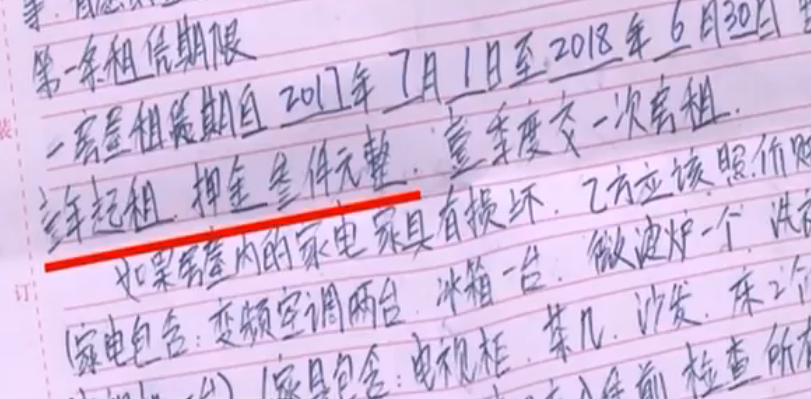 第一条租赁期限
一房屋租赁期自2017年7月1日至2018年6月30日
壹年起租.押金叁仟元整.壹季度交一次房租.
如果房屋内的家电家具有损坏.乙方应该照价赔
(家电包含:变频空调两台.冰箱一台.微波炉一个.洗
一台)(家具包含:电视柜.茶几.沙发.床2个
年前检查所有
装
订